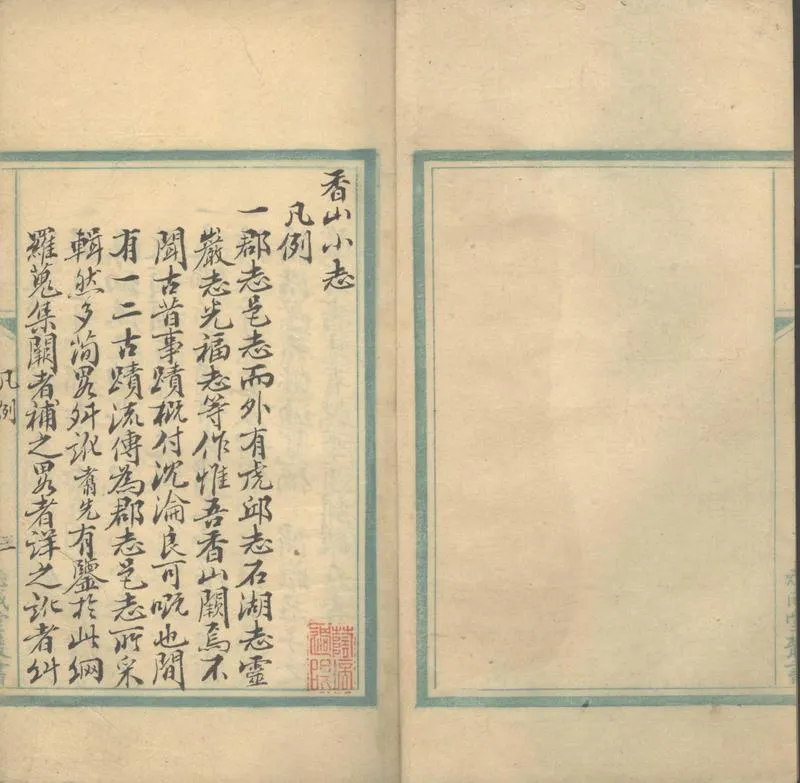 香山小志
凡例
一郡志邑志而外有虎邱志石湖志靈
巖志光福志等作惟吾香山闕焉不
聞古昔事蹟概付沉淪良可嘅也間
有一二古蹟流傳為郡志邑志所采
輯然多简畧舛訛翥先有鑒於此網
羅蒐集闕者補之畧者詳之訛者糾
凡例